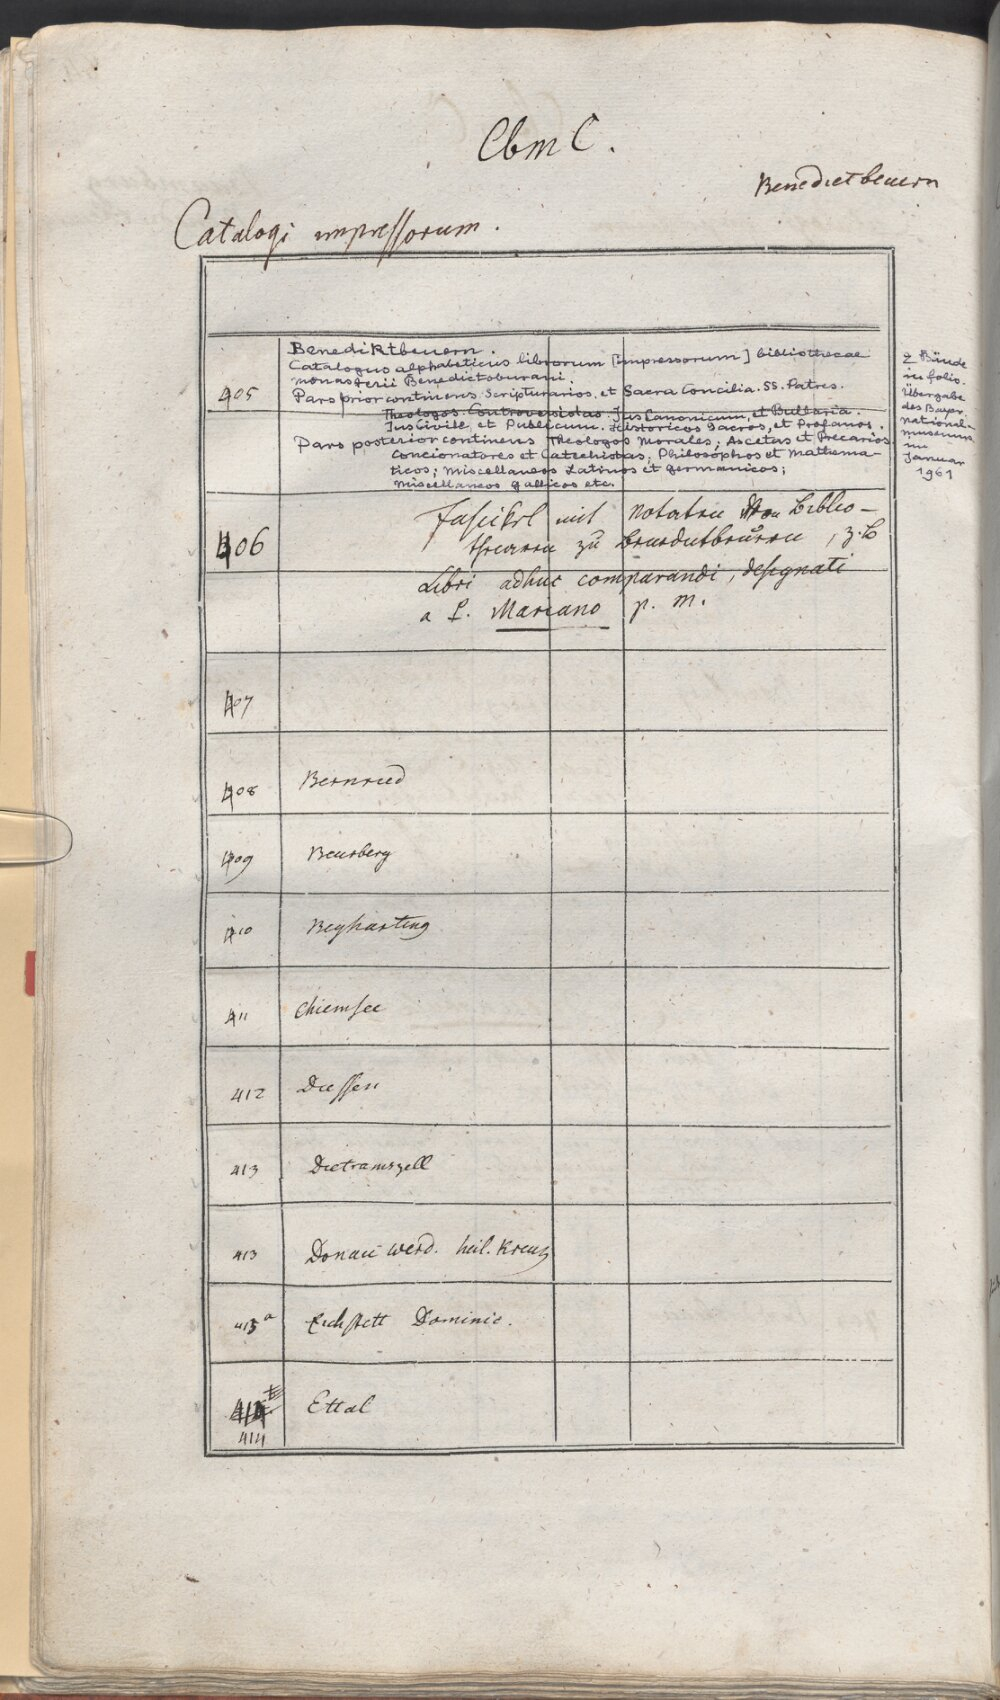 Cbm C.
Benedictbeuern
Catalogi impressorum.
405
Benediktbeuern.
Catalogus alphabeticus librorum [impressorum] bibliothecae
monasterii Benedictoburani.
Pars prior continens Scripturarios, et Sacra Concilia. SS. Patres.
Theologos Controversistas. Jus Canonicum, et Bullaria.
Jus Civile et Publicum. Historicos Sacros, et Profanos.
Pars posterior continens Theologos Morales; Ascetas et Precarios
Concionatores et Catechistas; Philosophos et Mathema-
ticos; Miscellaneos Latinos et germanicos;
Miscellaneos gallicos etc.
2 Bände
in folio.
Übergabe
des Bayr.
National-
museums
im
Januar
1961
406
Fascikel mit Notaten von Biblio-
thecaren zu Benedictbeuern, z. B
Libri adhuc comparandi, designati
a P. Mariano p. m.
407
408 Bernried
409 Beurberg
410 Beyharting
411 Chiemsee
412 Diessen
413 Dietramszell
413 Donau werd. heil. Kreuz
413 a Eichstett Dominic.
414 Ettal